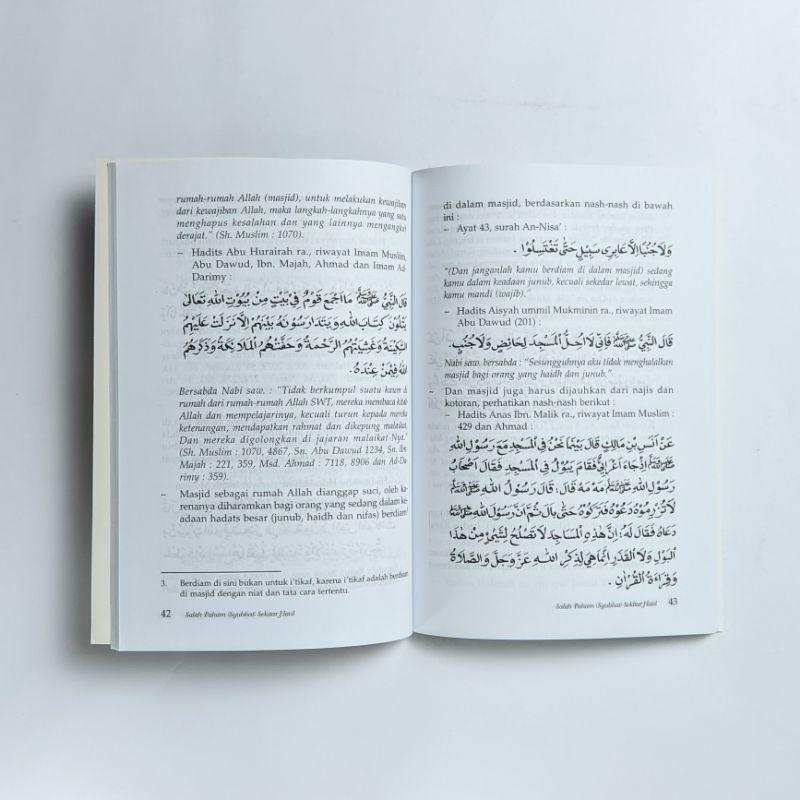 rumah-rumah Allah (masjid), untuk melakukan kewajiban
dari kewajiban Allah, maka langkah-langkahnya yang satu
menghapus kesalahan dan yang lainnya mengangkat
derajat." (Sh. Muslim : 1070).
– Hadits Abu Hurairah ra., riwayat Imam Muslim,
Abu Dawud, Ibn. Majah, Ahmad dan Imam Ad-
Darimy :
قَالَ النَّبِيُّ ﷺ مَا اجْمَعَ قَوْمٌ فِي بَيْتٍ مِنْ بُيُوْتِ اللهِ تَعَالَى
يَتْلُوْنَ كِتَابَ اللهِ وَيَتَدَارَسُوْنَهُ بَيْنَهُمْ إِلَّا نَزَلَتْ عَلَيْهِمُ
السَّكِيْنَةُ وَغَشِيَتْهُمُ الرَّحْمَةُ وَحَفَّتْهُمُ الْمَلَائِكَةُ وَذَكَرَهُمُ
اللهُ فِيْمَنْ عِنْدَهُ.
Bersabda Nabi saw. : "Tidak berkumpul suatu kaum di
rumah dari rumah-rumah Allah SWT, mereka membaca kitab
Allah dan mempelajarinya, kecuali turun kepada mereka
ketenangan, mendapatkan rahmat dan dikepung malaikat,
Dan mereka digolongkan di jajaran malaikat-Nya."
(Sh. Muslim : 1070, 4867, Sn. Abu Dawud 1234, Sn. Ibn.
Majah : 221, 359, Msd. Ahmad : 7118, 8906 dan Ad-Da-
rimy : 359).
– Masjid sebagai rumah Allah dianggap suci, oleh ka-
renanya diharamkan bagi orang yang sedang dalam ke-
adaan hadats besar (junub, haidh dan nifas) berdiam³
3. Berdiam di sini bukan untuk i'tikaf, karena i'tikaf adalah berdiam
di masjid dengan niat dan tata cara tertentu.
42 Salah Paham (Syubhat) Sekitar Haul
di dalam masjid, berdasarkan nash-nash di bawah
ini :
– Ayat 43, surah An-Nisa' :
وَلَا جُنُبًا إِلَّا عَابِرِى سَبِيْلٍ حَتَّى تَغْتَسِلُوْا .
"(Dan janganlah kamu berdiam di dalam masjid) sedang
kamu dalam keadaan junub, kecuali sekedar lewat, sehingga
kamu mandi (wajib)."
– Hadits Aisyah ummil Mukminin ra., riwayat Imam
Abu Dawud (201) :
قَالَ النَّبِيُّ ﷺ فَإِنِّي لَا أُحِلُّ الْمَسْجِدَ لِحَائِضٍ وَلَا جُنُبٍ.
Nabi saw. bersabda : "Sesungguhnya aku tidak menghalalkan
masjid bagi orang yang haidh dan junub."
– Dan masjid juga harus dijauhkan dari najis dan
kotoran, perhatikan nash-nash berikut :
– Hadits Anas Ibn. Malik ra., riwayat Imam Muslim :
429 dan Ahmad :
عَنْ أَنَسِ بْنِ مَالِكٍ قَالَ بَيْنَمَا نَحْنُ فِي الْمَسْجِدِ مَعَ رَسُوْلِ اللهِ
ﷺ إِذْ جَاءَ أَعْرَابِيٌّ فَقَامَ يَبُوْلُ فِي الْمَسْجِدِ فَقَالَ أَصْحَابُ
رَسُوْلِ اللهِ ﷺ مَهْ مَهْ قَالَ: قَالَ رَسُوْلُ اللهِ ﷺ
لَا تُزْرِمُوْهُ دَعُوْهُ فَتَرَكُوْهُ حَتَّى بَالَ ثُمَّ إِنَّ رَسُوْلَ اللهِ ﷺ
دَعَاهُ فَقَالَ لَهُ: إِنَّ هٰذِهِ الْمَسَاجِدَ لَا تَصْلُحُ لِشَيْءٍ مِنْ هٰذَا
الْبَوْلِ وَلَا الْقَذَرِ إِنَّمَا هِيَ لِذِكْرِ اللهِ عَزَّ وَجَلَّ وَالصَّلَاةِ
وَقِرَاءَةِ الْقُرْآنِ.
Salah Paham (Syubhat) Sekitar Haul 43